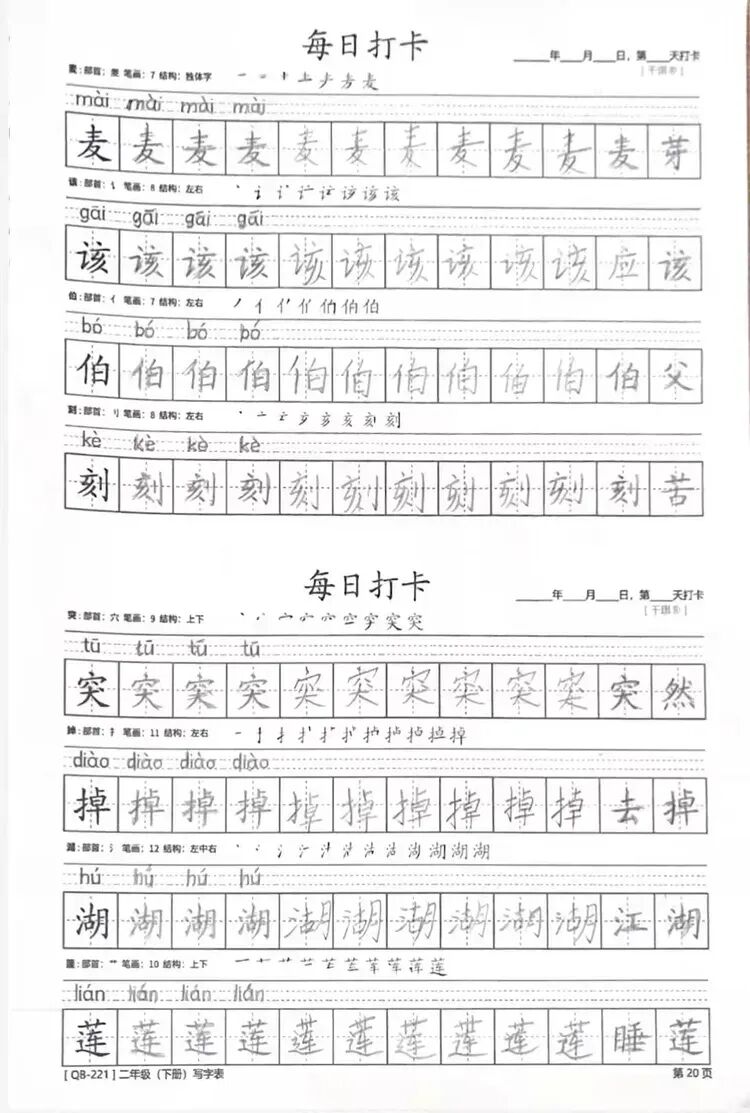 每日打卡
____年___月___日，第___天打卡
麦：部首：麦 笔画：7 结构：独体字
mài mài mài mài
麦 麦 麦 麦 麦 麦 麦 麦 麦 麦 麦 芽
该：部首：讠 笔画：8 结构：左右 该 该 该
gāi gāi gāi gāi
该 该 该 该 该 该 该 该 该 该 应 该
伯：部首：亻 笔画：7 结构：左右 伯 伯 伯
bó bó bó bó
伯 伯 伯 伯 伯 伯 伯 伯 伯 伯 伯 父
刻：部首：刂 笔画：8 结构：左右 刻 刻
kè kè kè kè
刻 刻 刻 刻 刻 刻 刻 刻 刻 刻 刻 苦
每日打卡
____年___月___日，第___天打卡
突：部首：穴 笔画：9 结构：上下 突 突
tū tū tū tū
突 突 突 突 突 突 突 突 突 突 突 然
掉：部首：扌 笔画：11 结构：左右 掉 掉
diào diào diào diào
掉 掉 掉 掉 掉 掉 掉 掉 掉 掉 去 掉
湖：部首：氵 笔画：12 结构：左中右 湖 湖 湖
hú hú hú hú
湖 湖 湖 湖 湖 湖 湖 湖 湖 湖 江 湖
部首：艹 笔画：10 结构：上下 莲 莲
lián lián lián lián
莲 莲 莲 莲 莲 莲 莲 莲 莲 莲 睡 莲
[ QB-221 ] 二年级（下册）写字表 第 20 页